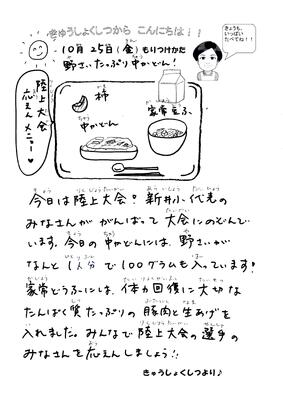 きゅうしょくしつから こんにちは!!
きょうも、
いっぱい
たべてね!!
10月25日(金)もりつけかた
野さいたっぷり中かどん!
陸上大会
応えんメニュー♥
柿
家常豆ふ
中かどん
今日は陸上大会!新井小代表の
みなさんが がんばって 大会にのぞんで
います。今日の中かどんには、野さいが
なんと1人分で100グラムも入っています!
家常どうふにしは、体力回復に大切な
たんぱく質たっぷりの豚肉と生あげを
入れました。みんなで陸上大会の選手の
みなさんを応えんしましょう!!
きゅうしょくしつより♪